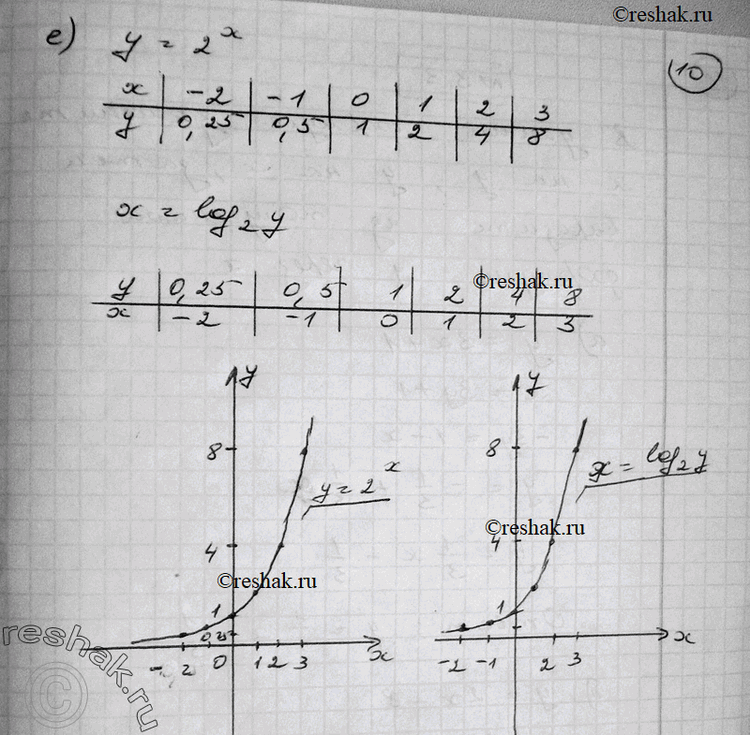 ©reshak.ru
е) y = 2^x
10
x | -2 | -1 | 0 | 1 | 2 | 3
y | 0,25 | 0,5 | 1 | 2 | 4 | 8
x = log₂ y
©reshak.ru
y | 0,25 | 0,5 | 1 | 2 | 4 | 8
x | -2 | -1 | 0 | 1 | 2 | 3
y
8
y = 2^x
4
©reshak.ru
1
0,25
-2 0 1 2 3 x
y
8
x = log₂ y
4
©reshak.ru
1
-2 -1 2 3 x
reshak.ru
©reshak.ru